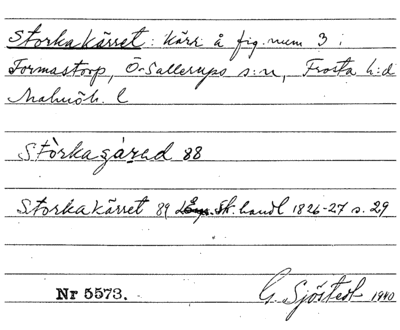 Storkakärret: Kärr å fig. num 3 i
Formastorp, Ö. Sallerups s:n, Frosta h:d
Malmöh. l
Storkagárad 88
Storkakärret 89 Sk. handl 1826-27 s. 29
Nr 5573. G. Sjöstedt 1940